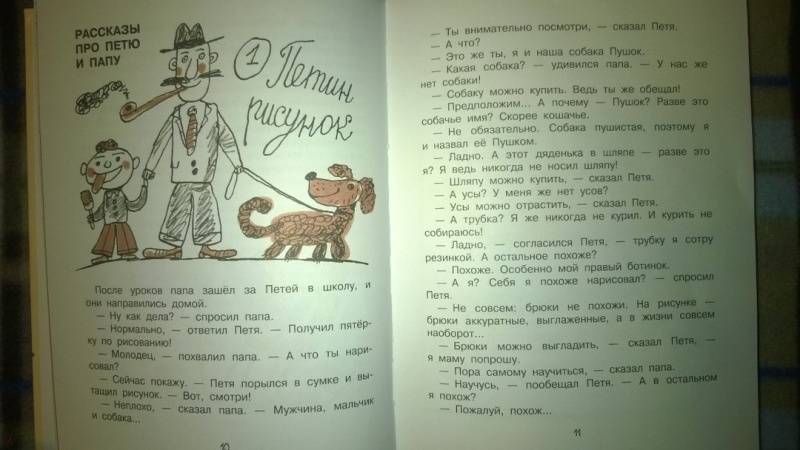 РАССКАЗЫ
ПРО ПЕТЮ
И ПАПУ
1 Петин
рисунок
После уроков папа зашёл за Петей в школу, и
они направились домой.
— Ну как дела? — спросил папа.
— Нормально, — ответил Петя. — Получил пятёр-
ку по рисованию!
— Молодец, — похвалил папа. — А что ты нари-
совал?
— Сейчас покажу. — Петя порылся в сумке и вы-
тащил рисунок. — Вот, смотри!
— Неплохо, — сказал папа. — Мужчина, мальчик
и собака...
10
— Ты внимательно посмотри, — сказал Петя.
— А что?
— Это же ты, я и наша собака Пушок.
— Какая собака? — удивился папа. — У нас же
нет собаки!
— Собаку можно купить. Ведь ты же обещал!
— Предположим... А почему — Пушок? Разве это
собачье имя? Скорее кошачье.
— Не обязательно. Собака пушистая, поэтому я
и назвал её Пушком.
— Ладно. А этот дяденька в шляпе — разве это
я? Я ведь никогда не носил шляпу!
— Шляпу можно купить, — сказал Петя.
— А усы? У меня же нет усов?
— Усы можно отрастить, — сказал Петя.
— А трубка? Я же никогда не курил. И курить не
собираюсь!
— Ладно, — согласился Петя, — трубку я сотру
резинкой. А остальное похоже?
— Похоже. Особенно мой правый ботинок.
— А я? Себя я похоже нарисовал? — спросил
Петя.
— Не совсем: брюки не похожи. На рисунке —
брюки аккуратные, выглаженные, а в жизни совсем
наоборот...
— Брюки можно выгладить, — сказал Петя, —
я маму попрошу.
— Пора самому научиться, — сказал папа.
— Научусь, — пообещал Петя. — А в остальном
я похож?
— Пожалуй, похож...
11